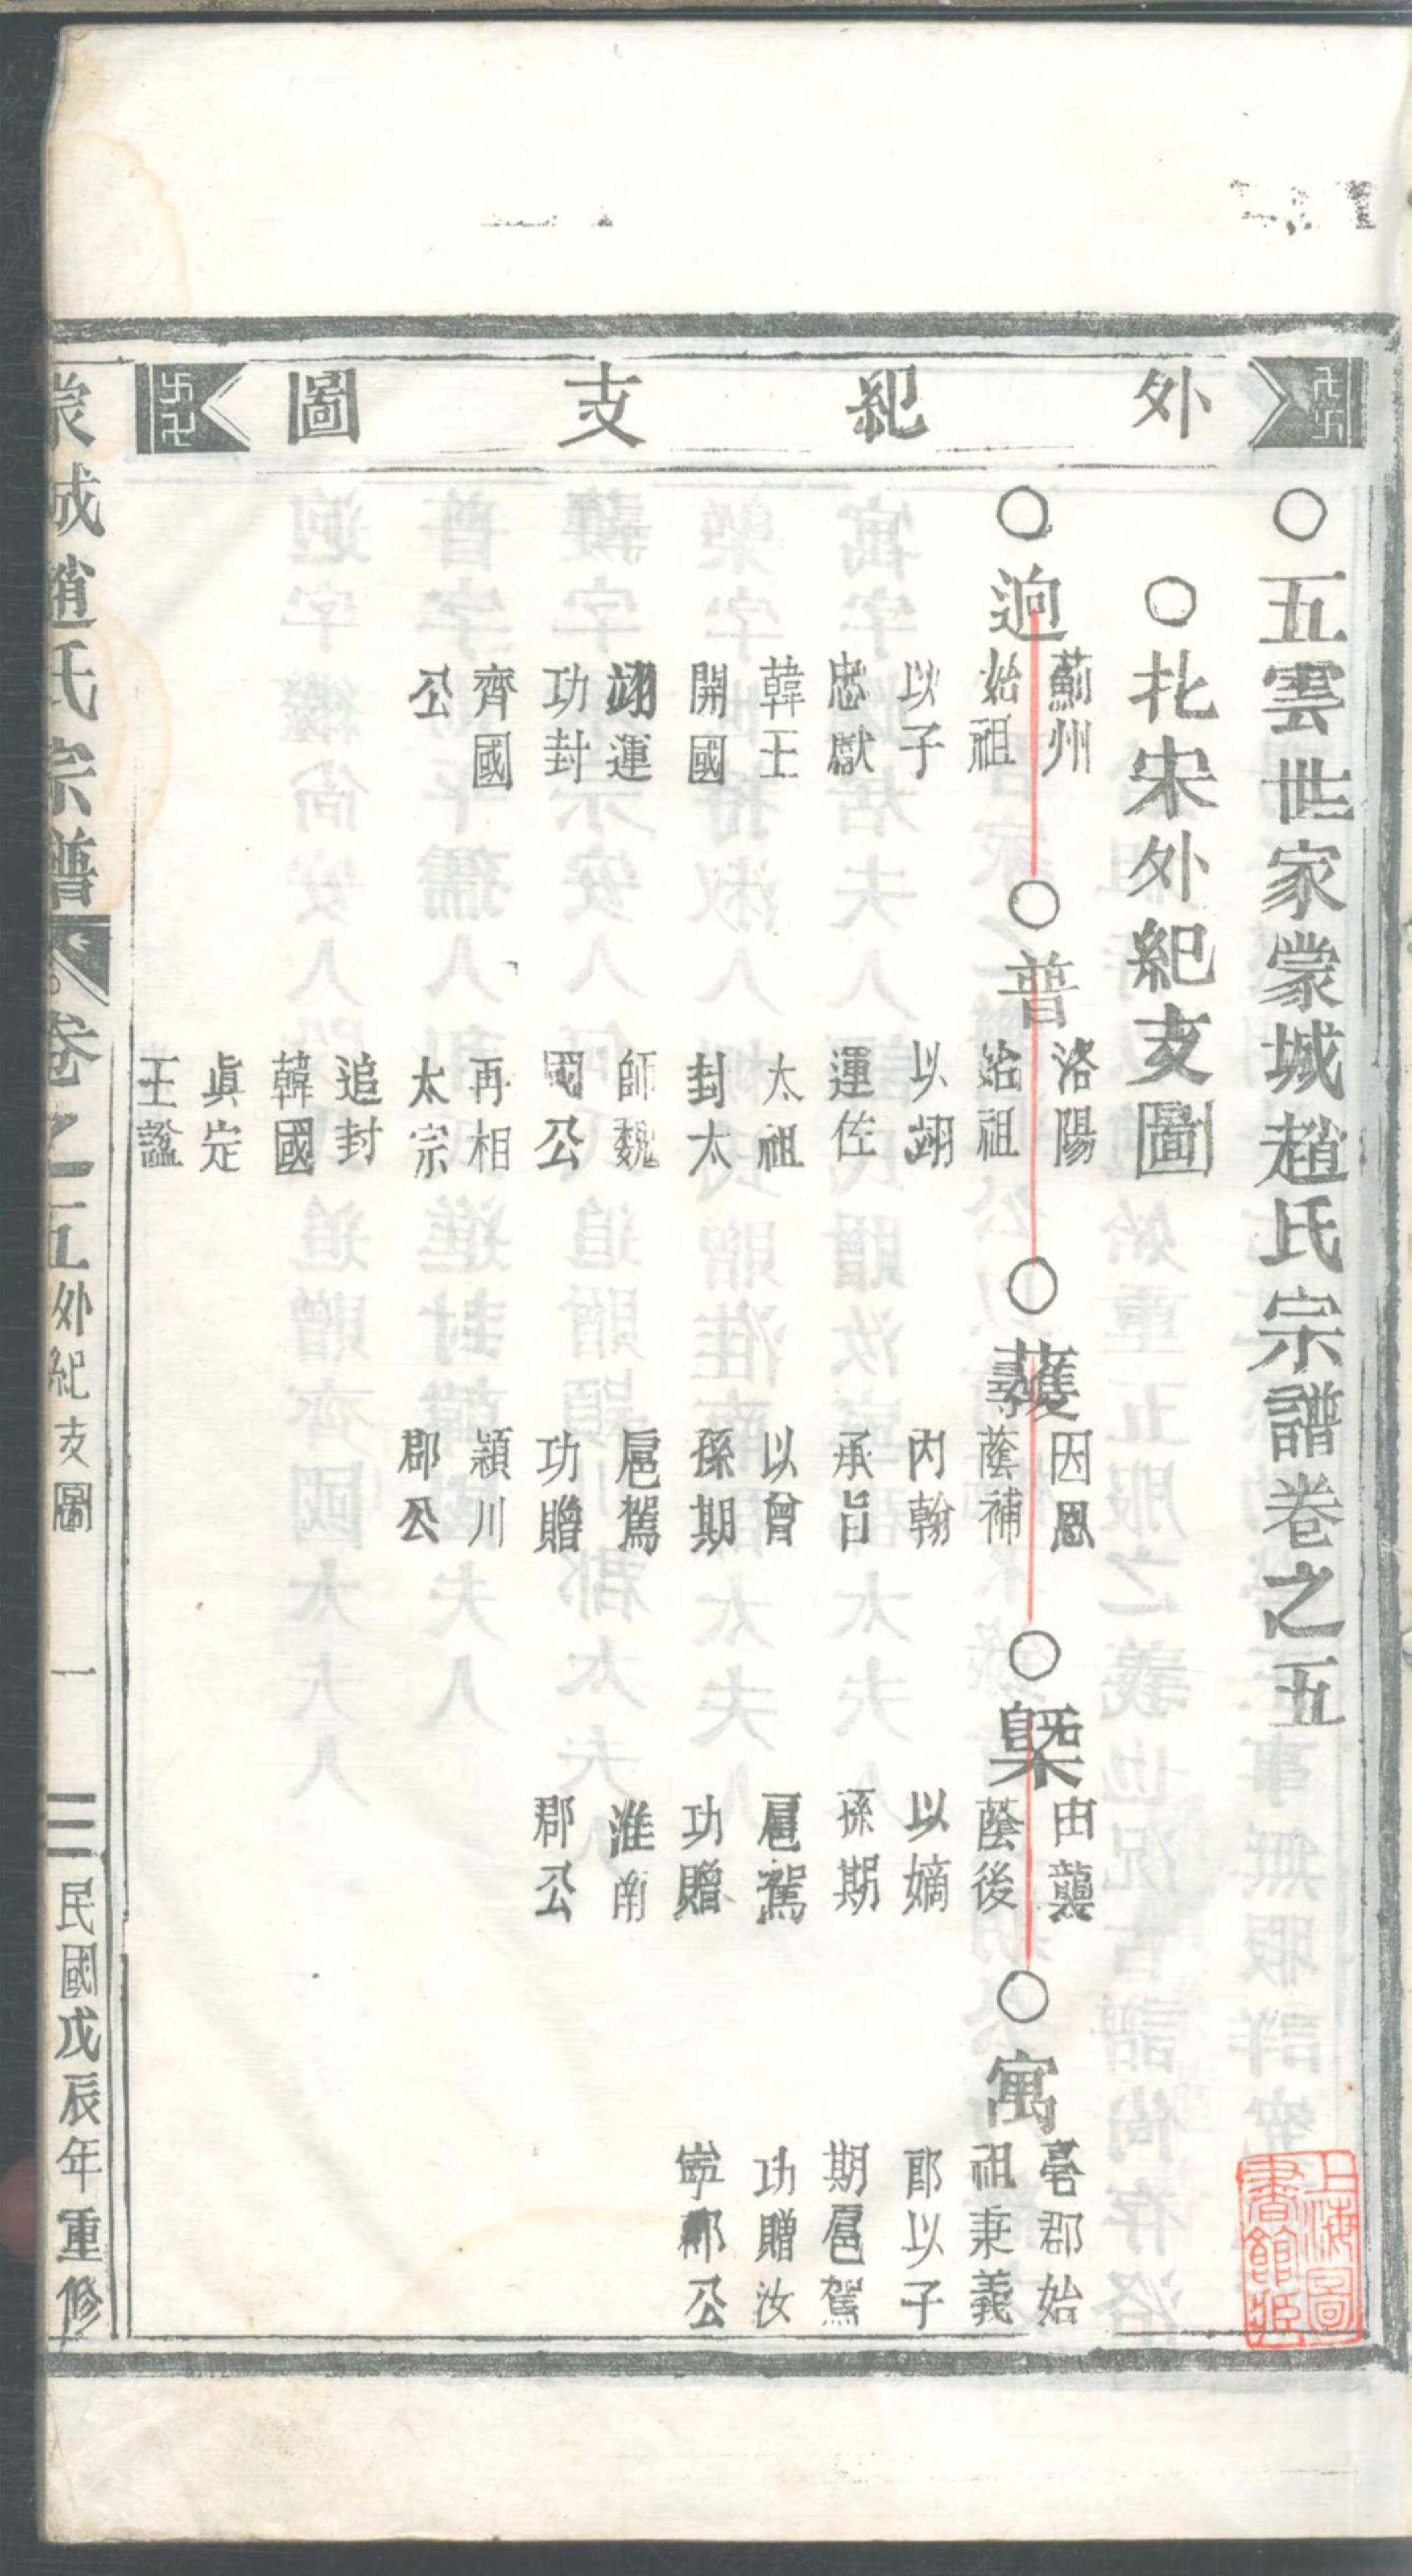 外紀支圖
○五雲世家蒙城趙氏宗譜卷之五
○北宋外紀支圖
○迥
薊州
始祖
以子
忠獻
韓王
開國
翊運
功封
齊國
公
○普
洛陽
始祖
以翊
運佐
太祖
封太
師魏
國公
再相
太宗
追封
韓國
眞定
王諡
○
因恩
蔭補
內翰
承旨
以曾
孫期
扈駕
功贈
潁川
郡公
○
由襲
蔭後
以嫡
孫期
扈駕
功贈
淮南
郡公
○寓
亳郡始
祖秉義
郎以子
期扈駕
功贈汝
寧郡公
蒙城趙氏宗譜
卷之五
外紀支圖
一
民國戊辰年重修
上海圖書館藏